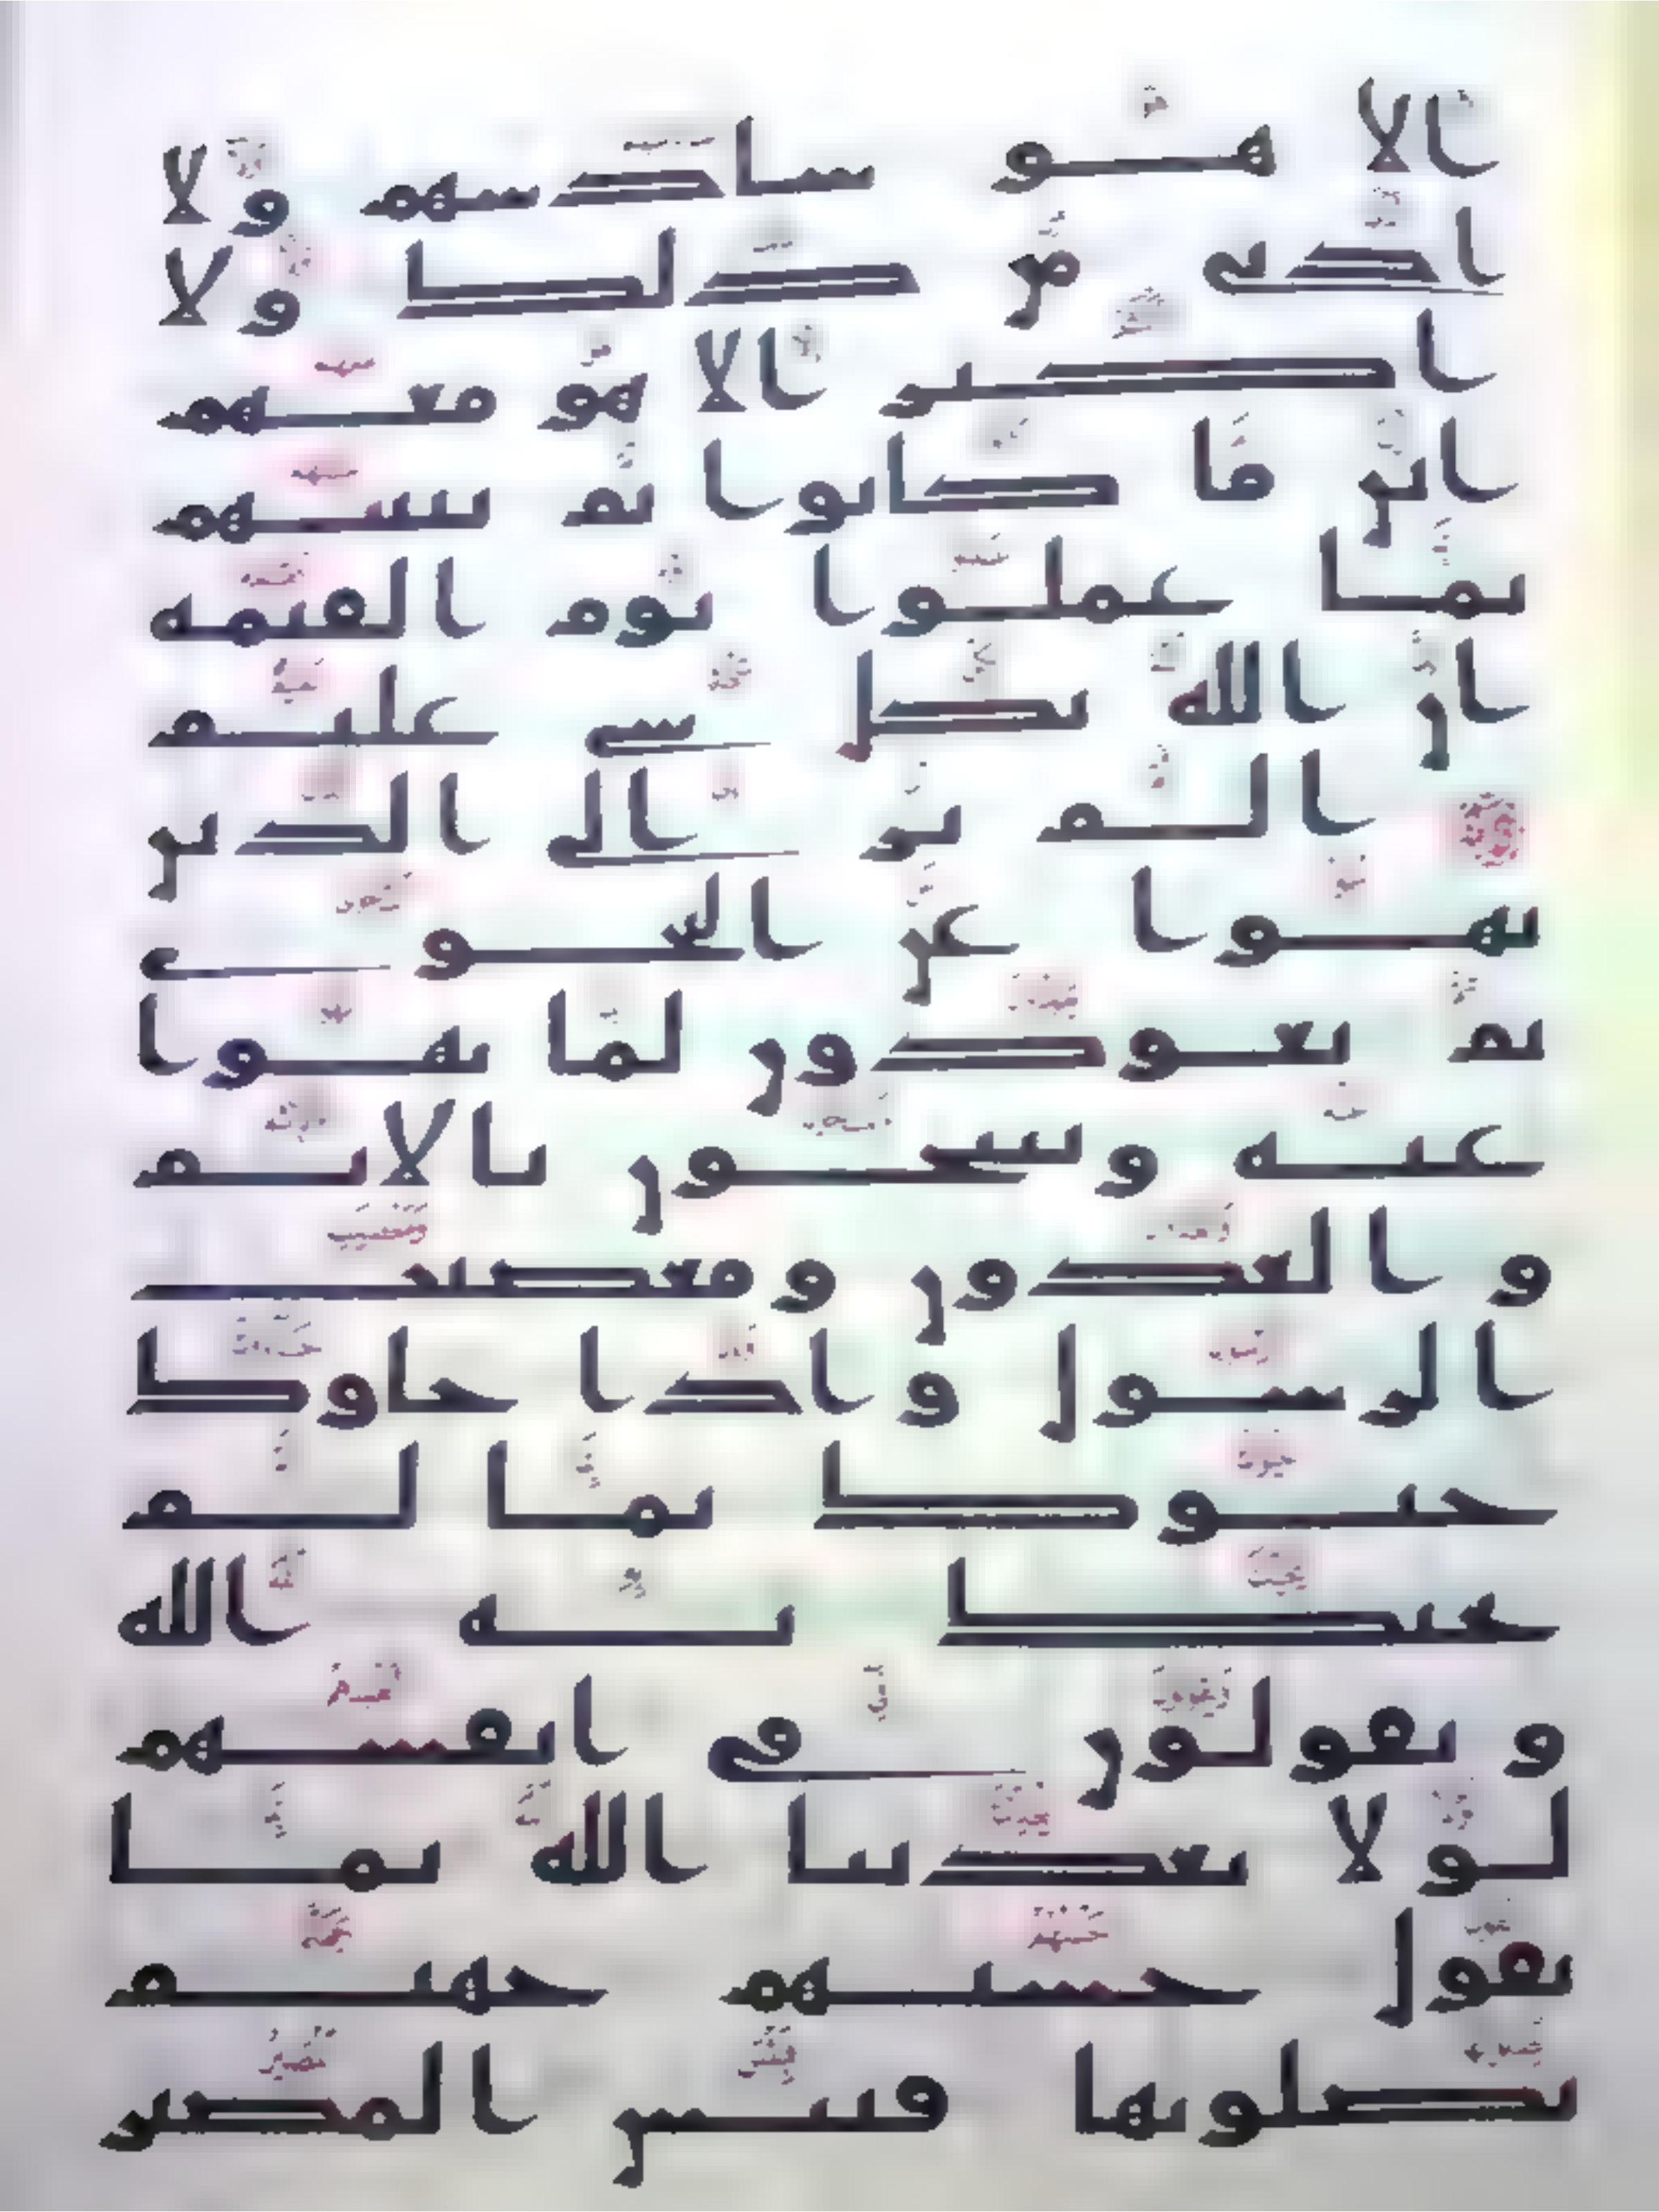 الا هو سادسهم ولا
ادنى من ذلك ولا
اكثر الا هو معهم
اين ما كانوا ثم ينبئهم
بما عملوا يوم القيمة
ان الله بكل شي عليم
الم تر الى الذين
نهوا عن النجوى
ثم يعودون لما نهوا
عنه ويتنجون بالاثم
و العدون ومعصيت
الرسول و اذا جاوك
حيوك بما لم
يحيك به الله
و يقولون في انفسهم
لولا يعذبنا الله بما
نقول حسبهم جهنم
يصلونها فبئس المصير